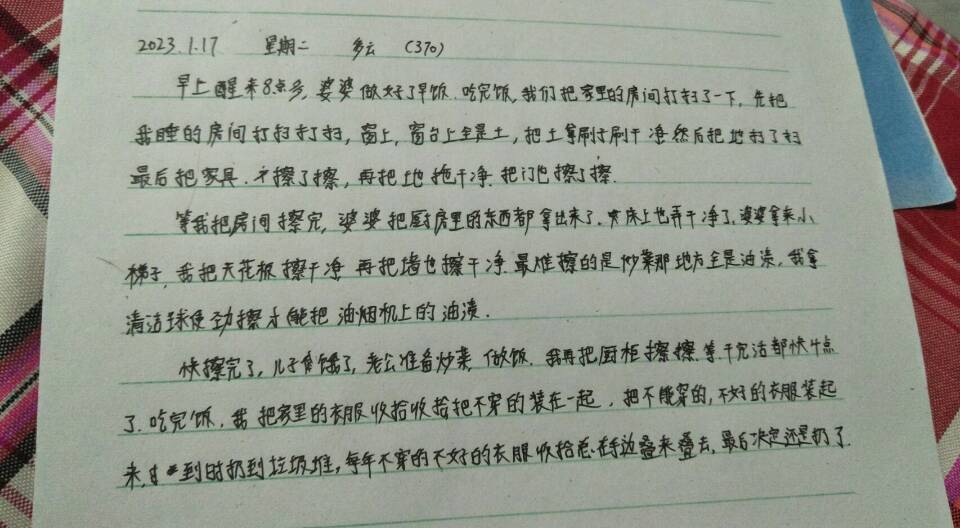 2023.1.17 星期二 多云 (370)
早上醒来8点多,婆婆做好了早饭.吃完饭,我们把家里的房间打扫了一下,先把
我睡的房间打扫打扫,窗上,窗台上全是土,把土拿刷子刷干净然后把地扫了扫
最后把家具.擦了擦,再把地拖干净.把门也擦了擦.
等我把房间擦完,婆婆把厨房里的东西都拿出来了.床上也弄干净了,婆婆拿来小
梯子,我把天花板擦干净 再把墙也擦干净 最难擦的是炒菜那地方全是油渍,我拿
清洁球使劲擦才能把油烟机上的油渍.
快擦完了,儿子饿了,老公准备炒菜,做饭.我再把厨柜擦擦.等干完活都快4点
了.吃完饭,我把家里的衣服收拾收拾把不穿的装在一起,把不能穿的,不好的衣服装起
来,到时扔到垃圾堆,每年不穿的不好的衣服收拾总在手边叠来叠去,最后决定还是扔了.